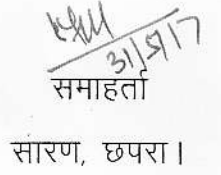 31/5/17
समाहर्ता
सारण, छपरा।